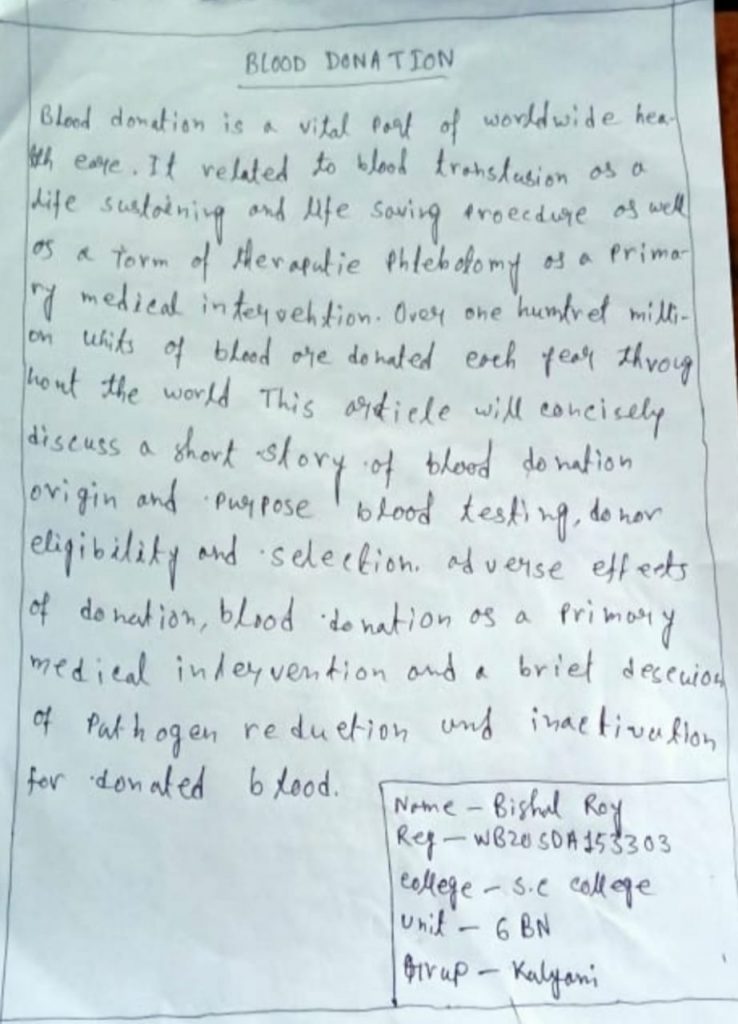 BLOOD DONATION
Blood donation is a vital part of worldwide hea-
lth care. It related to blood transfusion as a
life sustaining and life saving procedure as well
as a form of theraputic phlebotomy as a prima-
ry medical intervention. Over one hundret milli-
on units of blood are donated each year throug
hout the world This article will concisely
discuss a short story of blood donation
origin and purpose blood testing, donor
eligibility and selection. adverse effects
of donation, blood donation as a primary
medical intervention and a brief
of Pathogen reduction and inactivation
for donated blood.
Name - Bishal Roy
Reg - WB20SDA153303
College - S.C College
Unit - 6 BN
Group - Kalyani